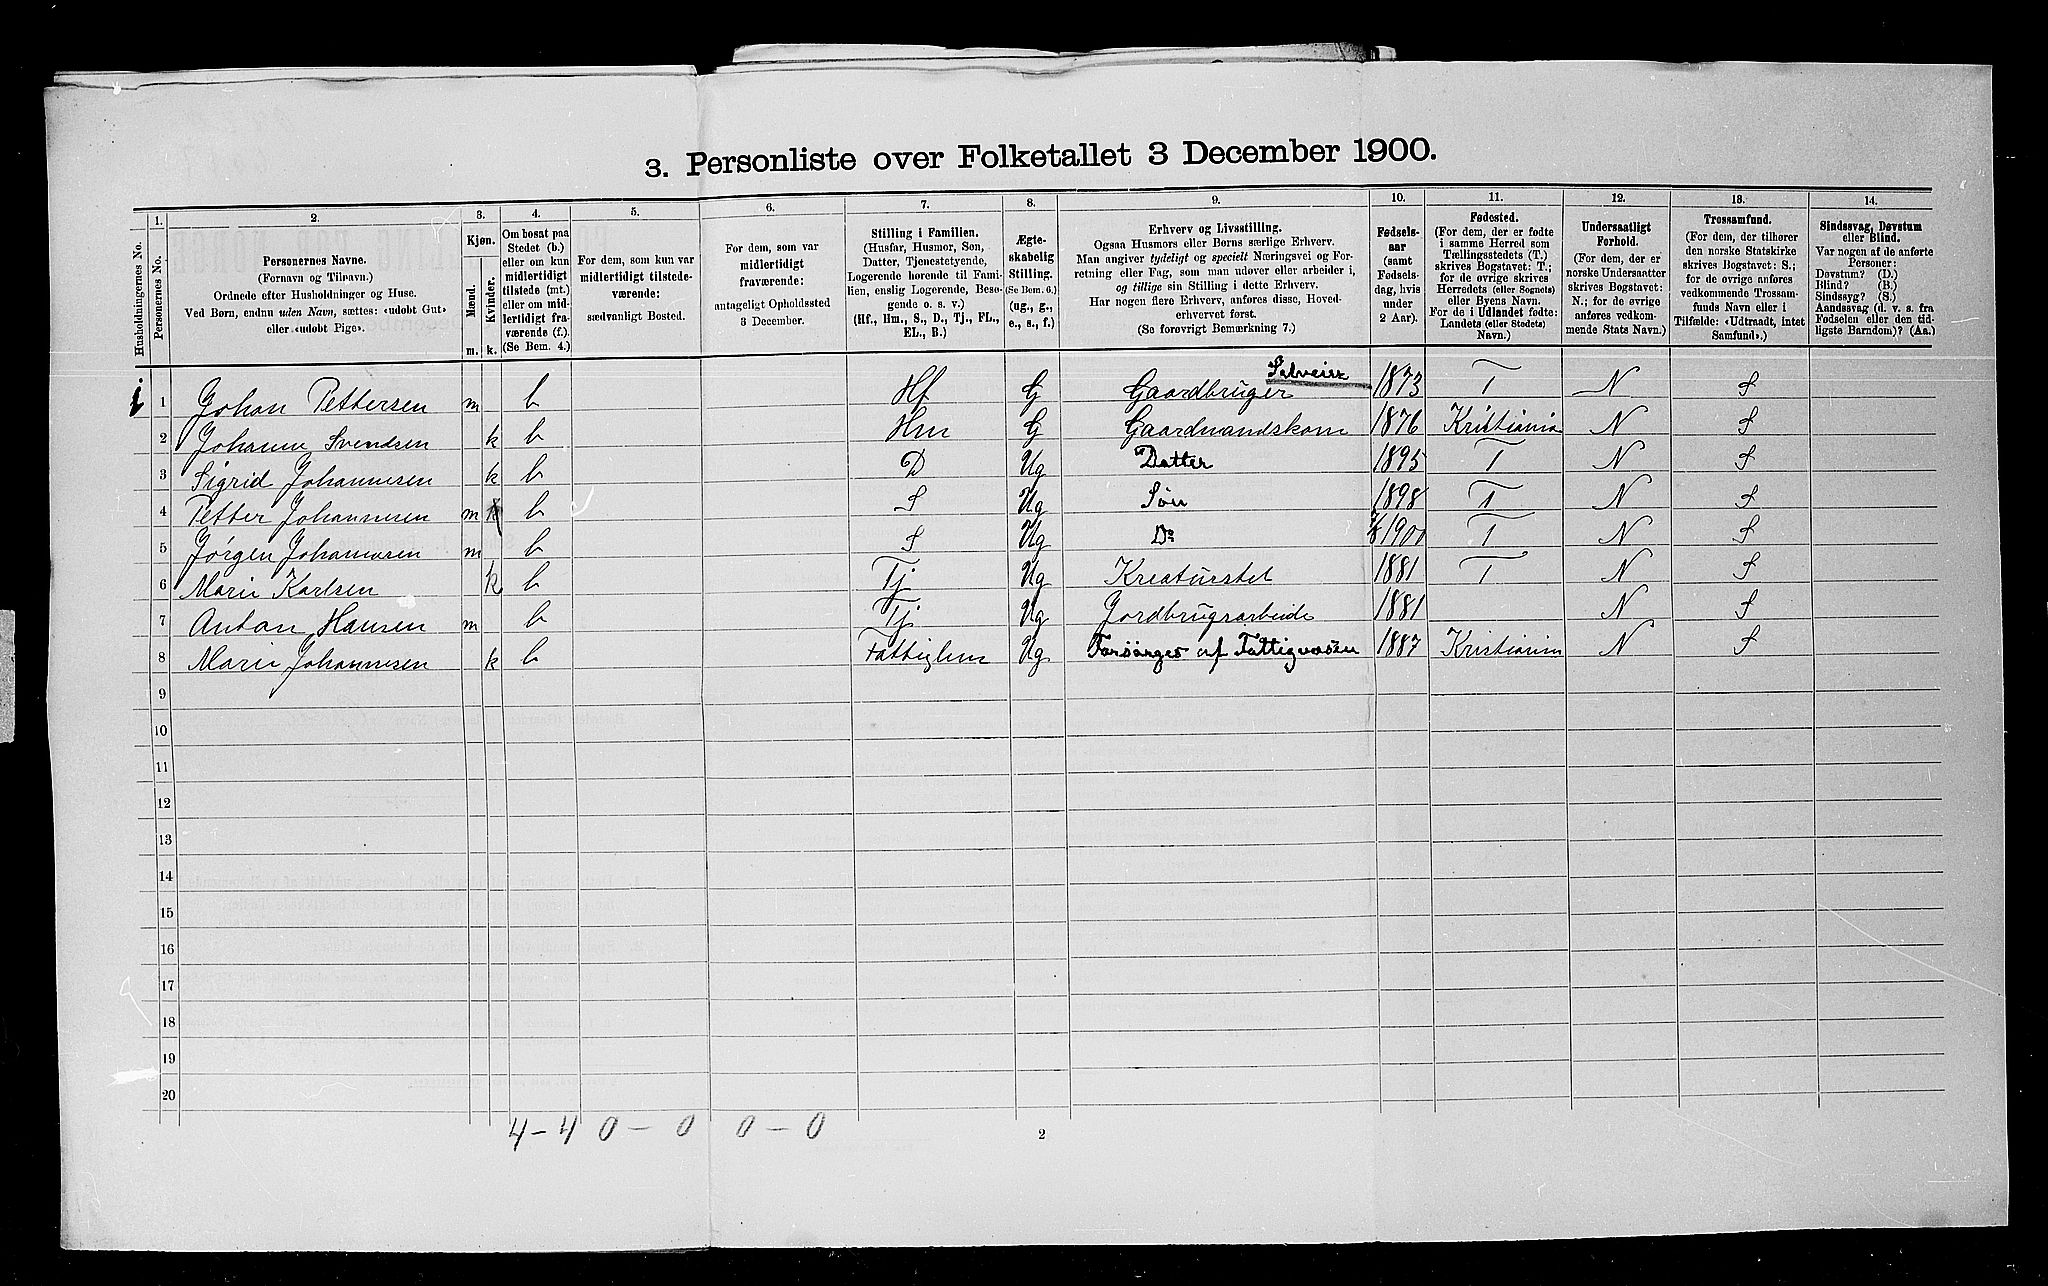 3. Personliste over Folketallet 3 December 1900.
1. 2. 3. 4. 5. 6. 7. 8. 9. 10. 11. 12. 13. 14.
Husholdningernes No.
Personernes No.
Personernes Navne.
(Fornavn og Tilnavn.)
Ordnede efter Husholdninger og Huse.
Ved Børn, endnu uden Navn, sættes: «udobt Gut»
eller «udobt Pige».
Kjøn.
Mænd.
Kvinder.
m. k.
Om bosat paa
Stedet (b.)
eller om kun
midlertidigt
tilstede (mt.)
eller om mid-
lertidigt fra-
værende (f.).
(Se Bem. 4.)
For dem, som kun var
midlertidigt tilstede-
værende:
sædvanligt Bosted.
For dem, som var
midlertidigt
fraværende:
antageligt Opholdssted
3 December.
Stilling i Familien.
(Husfar, Husmor, Søn,
Datter, Tjenestetyende,
Logerende hørende til Fami-
lien, enslig Logerende, Besø-
gende o. s. v.)
(Hf., Hm., S., D., Tj., FL.,
EL., B.)
Ægte-
skabelig
Stilling.
(Se Bem. 6.)
(ug., g.,
e., s., f.)
Erhverv og Livsstilling.
Ogsaa Husmors eller Børns særlige Erhverv.
Man angiver tydeligt og specielt Næringsvei og For-
retning eller Fag, som man udøver eller arbeider i,
og tillige sin Stilling i dette Erhverv.
Har nogen flere Erhverv, anføres disse, Hoved-
erhvervet først.
(Se forøvrigt Bemærkning 7.)
Fødsels-
aar
(samt
Fødsels-
dag, hvis
under
2 Aar).
Fødested.
(For dem, der er fødte
i samme Herred som
Tællingsstedets (T.)
skrives Bogstavet: T.;
for de øvrige skrives
Herredets (eller Sognets)
eller Byens Navn.
For de i Udlandet fødte:
Landets (eller Stedets)
Navn.)
Undersaatligt
Forhold.
(For dem, der er
norske Undersaatter
skrives Bogstavet:
N.; for de øvrige
anføres vedkom-
mende Stats Navn.)
Trossamfund.
(For dem, der tilhører
den norske Statskirke
skrives Bogstavet: S.;
for de øvrige anføres
vedkommende Trossam-
funds Navn eller i
Tilfælde: «Udtraadt, intet
Samfund».)
Sindssvag, Døvstum
eller Blind.
Var nogen af de anførte
Personer:
Døvstum? (D.)
Blind? (B.)
Sindssyg? (S.)
Aandssvag (d. v. s. fra
Fødselen eller den tid-
ligste Barndom)? (Aa.)
Selveier
1 Johan Pettersen m b Hf G Gaardbruger 1873 T N S
2 Johanne Svendsen k b Hm G Gaardmandskone 1876 Kristiania N S
3 Sigrid Johannesen k b D Ug Datter 1895 T N S
4 Petter Johannesen m k b S Ug Søn 1898 T N S
5 Jørgen Johannesen m b S Ug Do 1900 T N S
6 Marie Karlsen k b Tj Ug Kreaturstel 1881 T N S
7 Anton Hansen m b Tj Ug Jordbrugsarbeide 1881 N S
8 Marie Johannesen k b Fattiglem Ug Forsørges af Fattigvæsen 1887 Kristiania N S
9
10
11
12
13
14
15
16
17
18
19
20
4 - 4 0 - 0 0 - 0
2